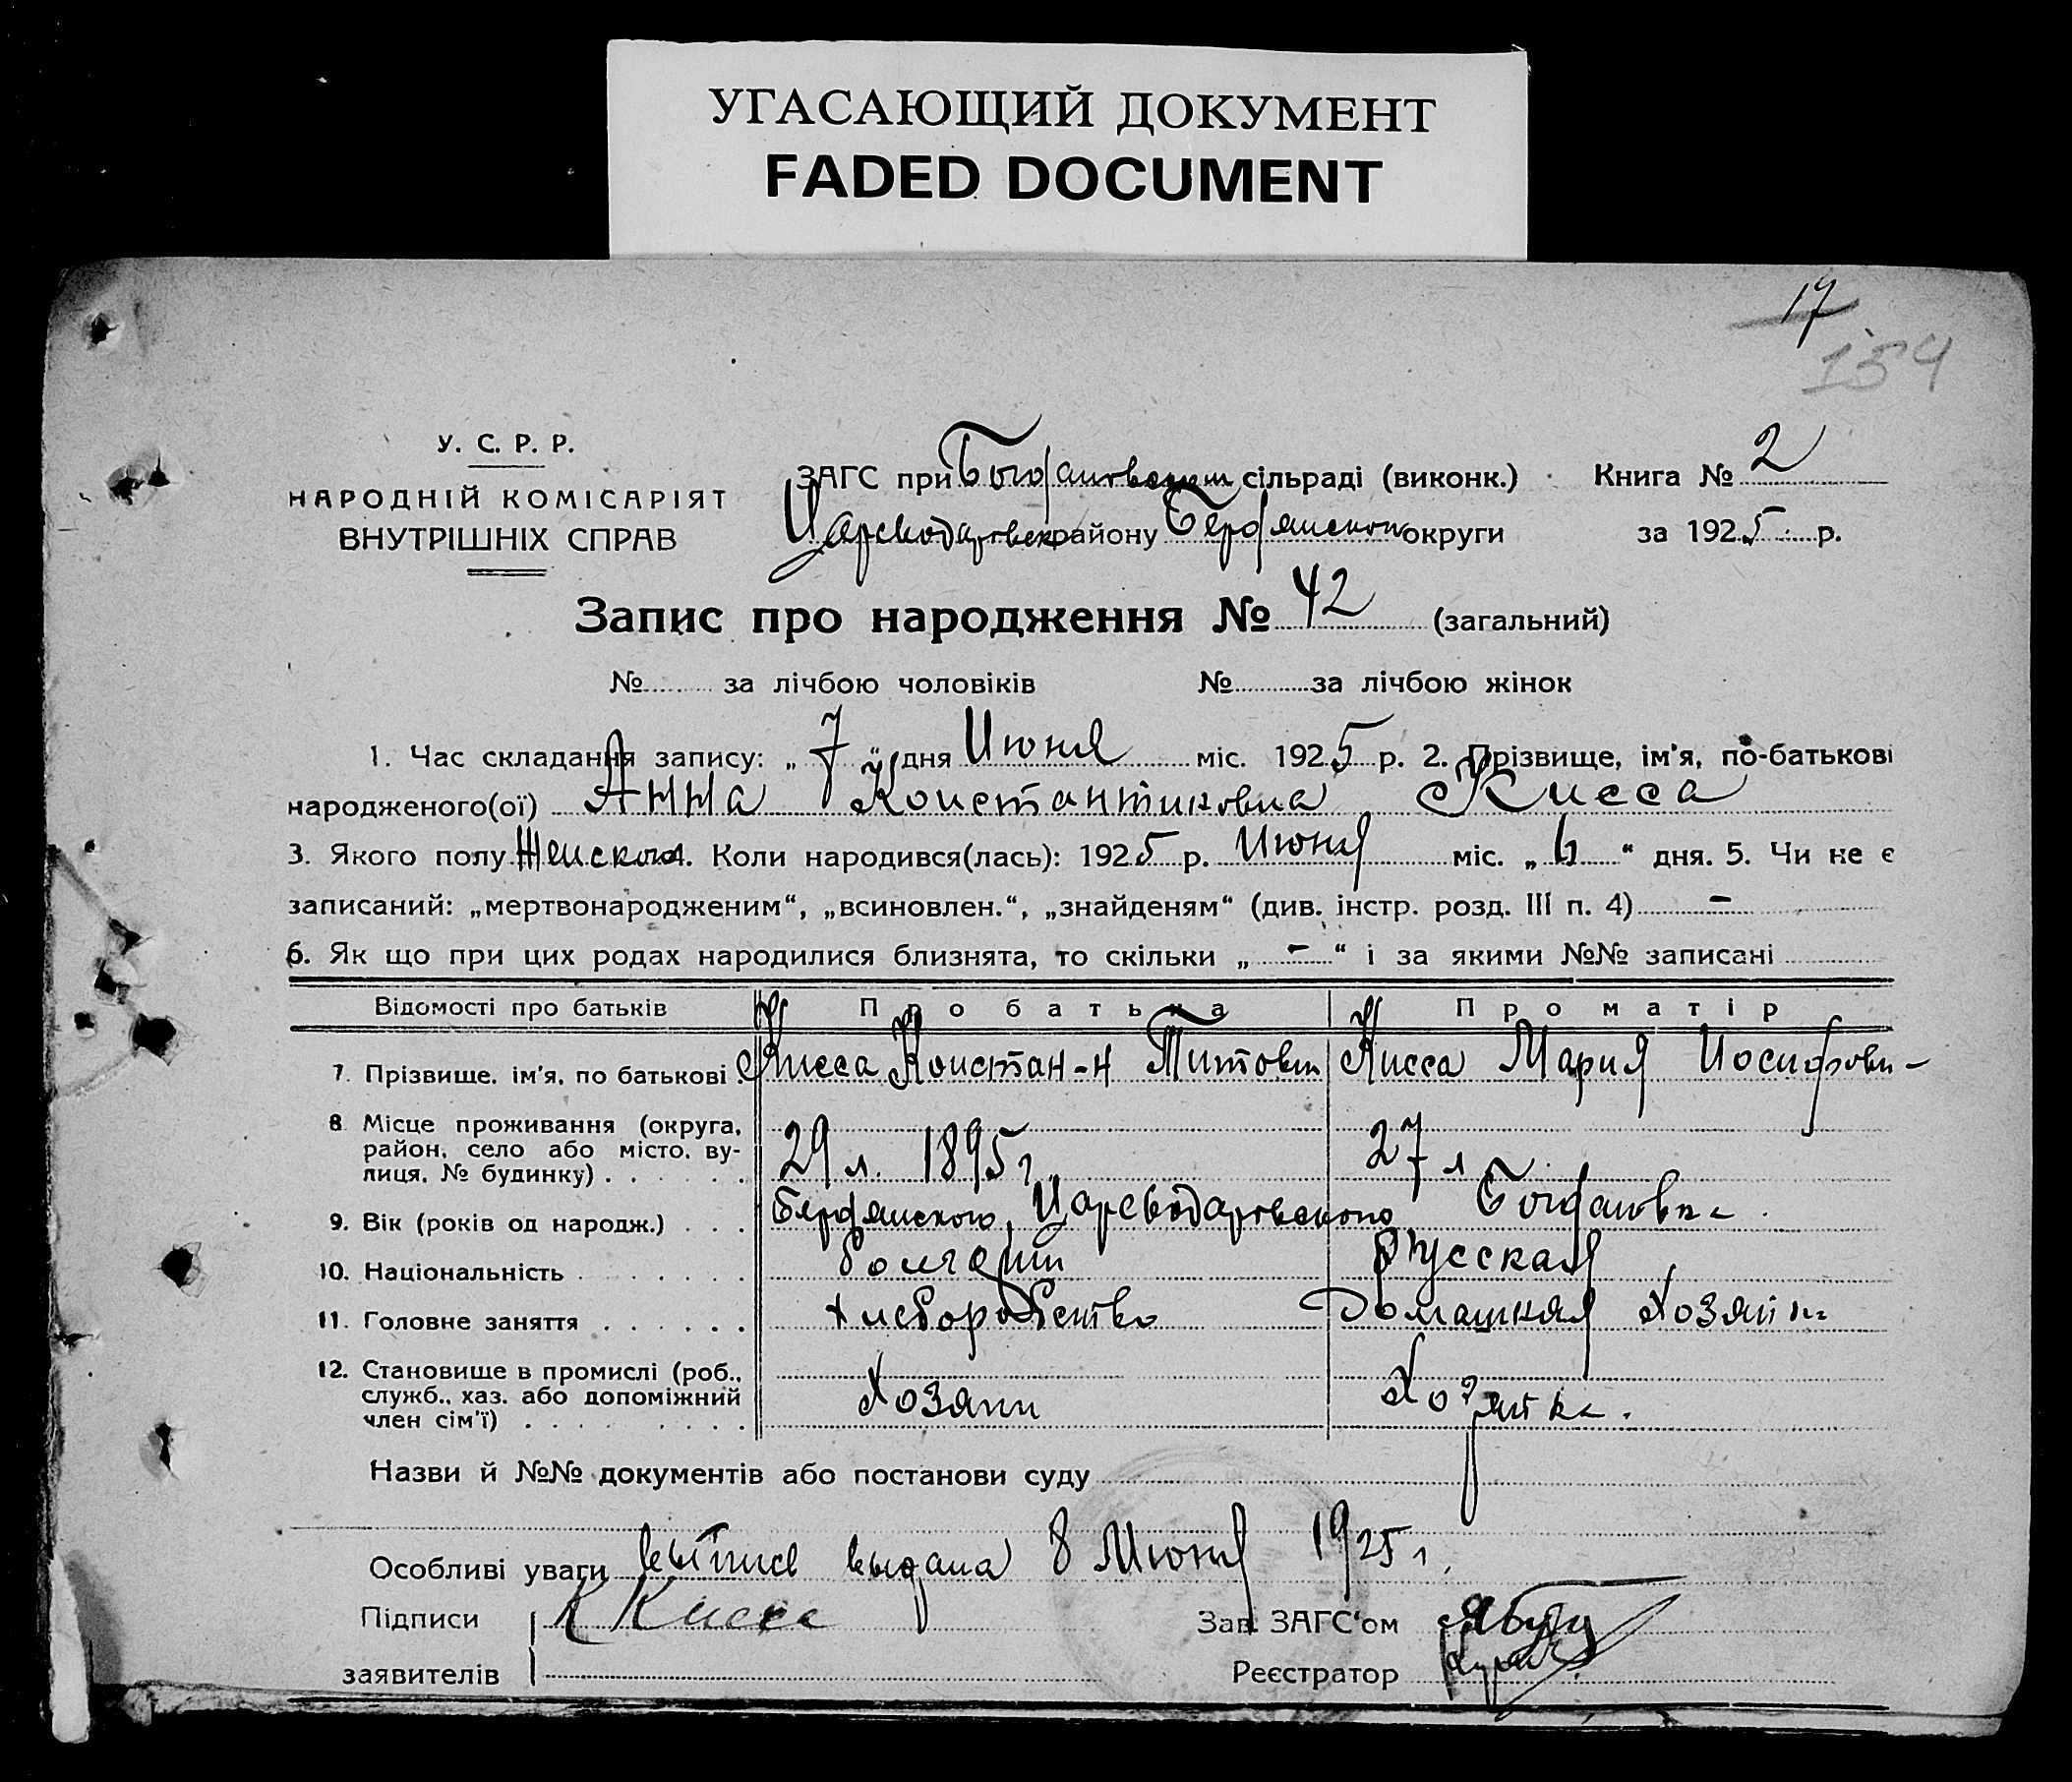 УГАСАЮЩИЙ ДОКУМЕНТ
FADED DOCUMENT
17
154
У. С. Р. Р.
НАРОДНІЙ КОМІСАРІЯТ
ВНУТРІШНІХ СПРАВ
ЗАГС при Богдановском сільраді (виконк.) Книга № 2
Цареводаровск району Бердянской округи за 1925 р.
Запис про народження № 42 (загальний)
№ за лічбою чоловіків № за лічбою жінок
1. Час складання запису: „ 7 " дня Июня міс. 1925 р. 2. Прізвище, ім'я, по-батькові
народженого(ої) Анна Константиновна Кисса
3. Якого полу Женского 4. Коли народився(лась): 1925 р. Июня міс. „ 6 “ дня. 5. Чи не є
записаний: „мертвонародженим“, „всиновлен.“, „знайденям“ (див. інстр. розд. III п. 4) -
6. Як що при цих родах народилися близнята, то скільки „ - “ і за якими №№ записані
Відомості про батьків Про батька Про матір
7. Прізвище, ім'я, по батькові Кисса Констан-н Титович Кисса Мария Иосифовн-
8 Місце проживання (округа,
район, село або місто, ву-
лиця, № будинку) 29 л. 1895 г. 27 л
9. Вік (років од народж.) Бердянского, Цареводаровского Богдановка
10. Національність болгарин Русская
11. Головне заняття хлеборобство Домашняя хозяйка
12. Становище в промислі (роб.,
служб., хаз. або допоміжний
член сім'ї) Хозяин Хозяйка.
Назви й №№ документів або постанови суду
Особливі уваги выпись выдана 8 Июня 1925 г.
Підписи К Кисса Зав. ЗАГС'ом
заявителів Реєстратор